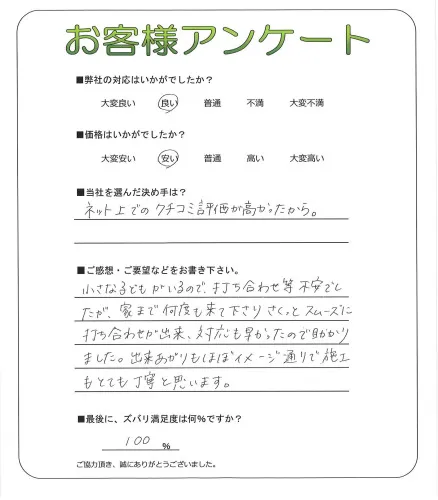 お客様アンケート
■弊社の対応はいかがでしたか？
大変良い 良い 普通 不満 大変不満
■価格はいかがでしたか？
大変安い 安い 普通 高い 大変高い
■当社を選んだ決め手は？
ネット上でのクチコミ評価が高かったから。
■ご感想・ご要望などをお書き下さい。
小さな子どもがいるので、打ち合わせ等不安でし
たが、家まで何度も来て下さりさくっとスムーズに
打ち合わせが出来、対応も早かったので助かり
ました。出来あがりもほぼイメージ通りで施工
もとても丁寧と思います。
■最後に、ズバリ満足度は何％ですか？
100 ％
ご協力頂き、誠にありがとうございました。